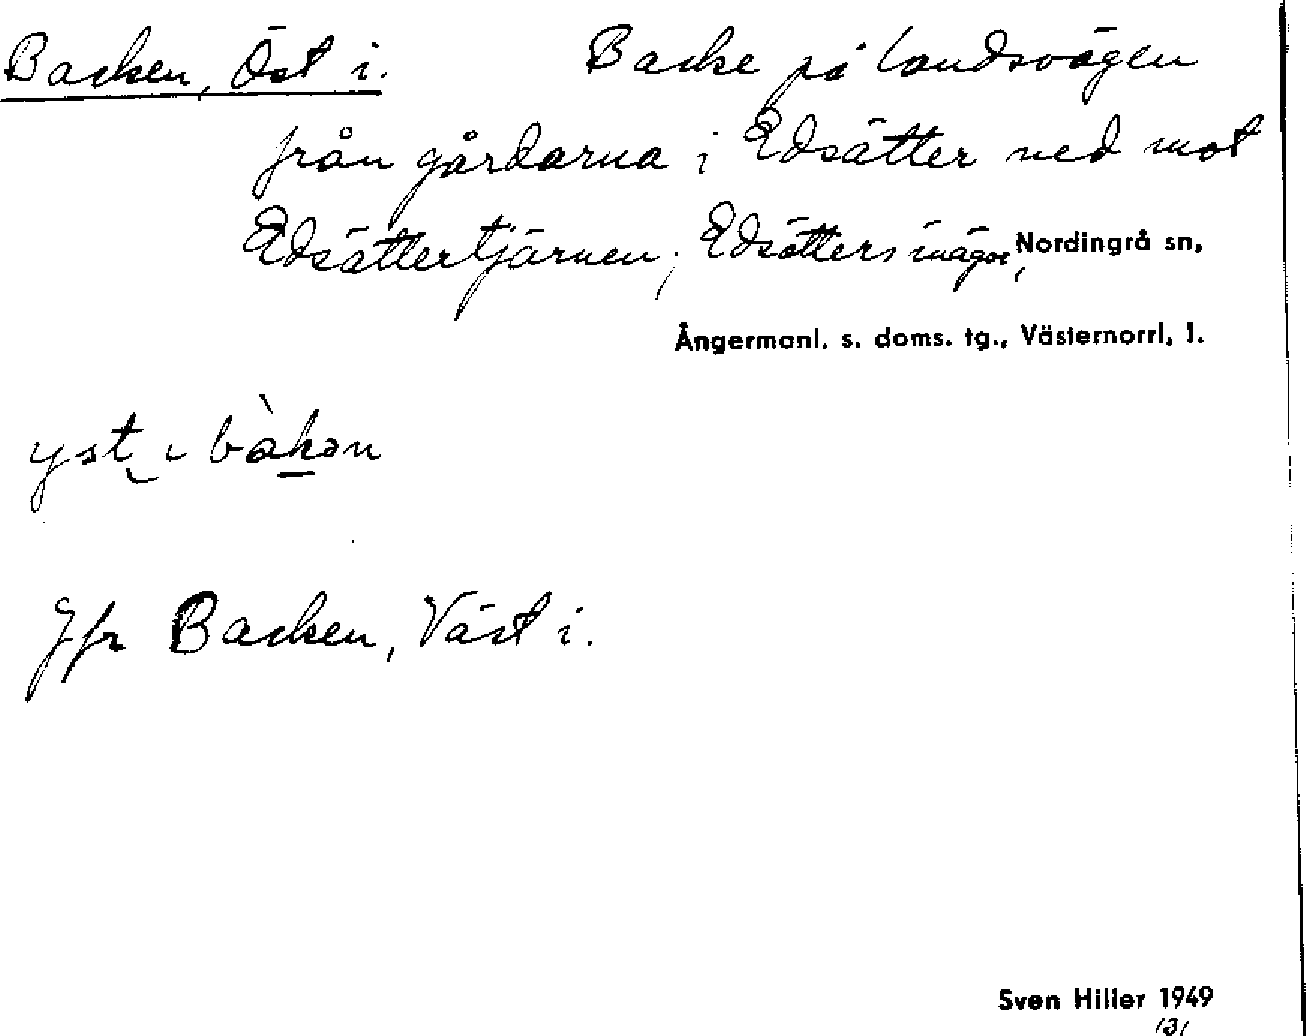 Backen, Öst i. Backe på landsvägen
från gårdarna i Edsätter ned mot
Edsättertjärnen; Edsätters inägor, Nordingrå sn,
Ångermanl. s. doms. tg., Västernorrl. l.
yst ɩ bàkən
Jfr Backen, Väst i.
Sven Hiller 1949
131